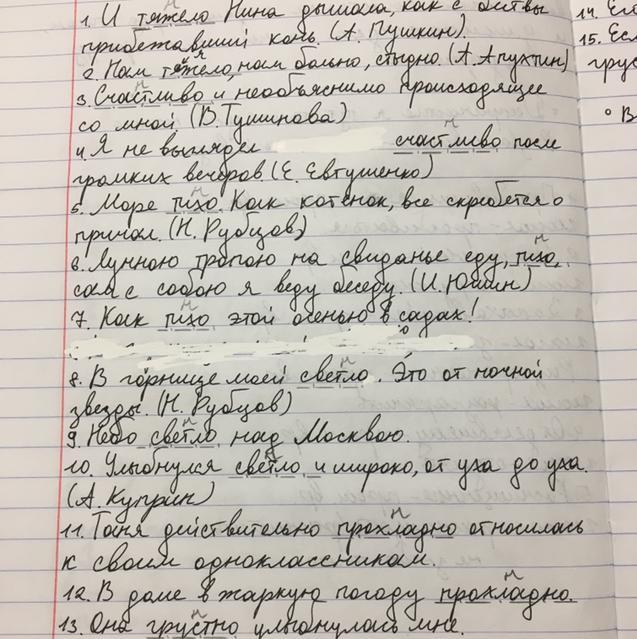 1. И тяжело Нина дышала, как с битвы
прибежавший конь. (А. Пушкин).
14. Его
2. Нам тяжело, нам больно, стыдно. (А. Апухтин)
15. Есл
3. Счастливо и необъяснимо происходящее
грус
со мной. (В. Тушнова)
4. Я не выглядел счастливо после
громких вечеров. (Е. Евтушенко)
5. Море тихо. Как котенок, все скребется о
причал. (Н. Рубцов)
6. Лунною тропою на свиданье еду, тихо
сам с собою я веду беседу. (И. Юшин)
7. Как тихо этой осенью в садах!
8. В горнице моей светло. Это от ночной
звезды. (Н. Рубцов)
9. Небо светло над Москвою.
10. Улыбнулся светло и широко, от уха до уха.
(А. Куприн)
11. Таня действительно прохладно относилась
к своим одноклассникам.
12. В доме в жаркую погоду прохладно.
13. Она грустно улыбнулась мне.